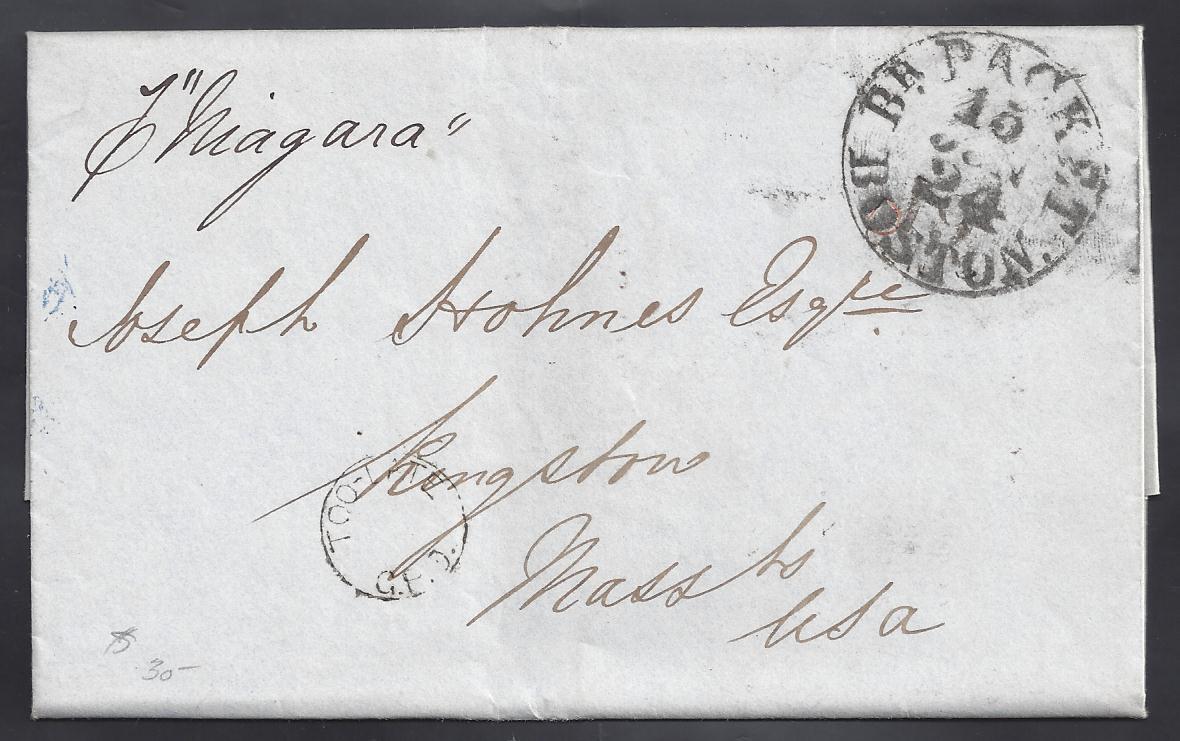 ℘ "Niagara"
BR. PACKET
BOSTON
15
Joseph Holmes Esqre
Kingston
TOO-LATE
G.P.O.
Massts
USA
30-